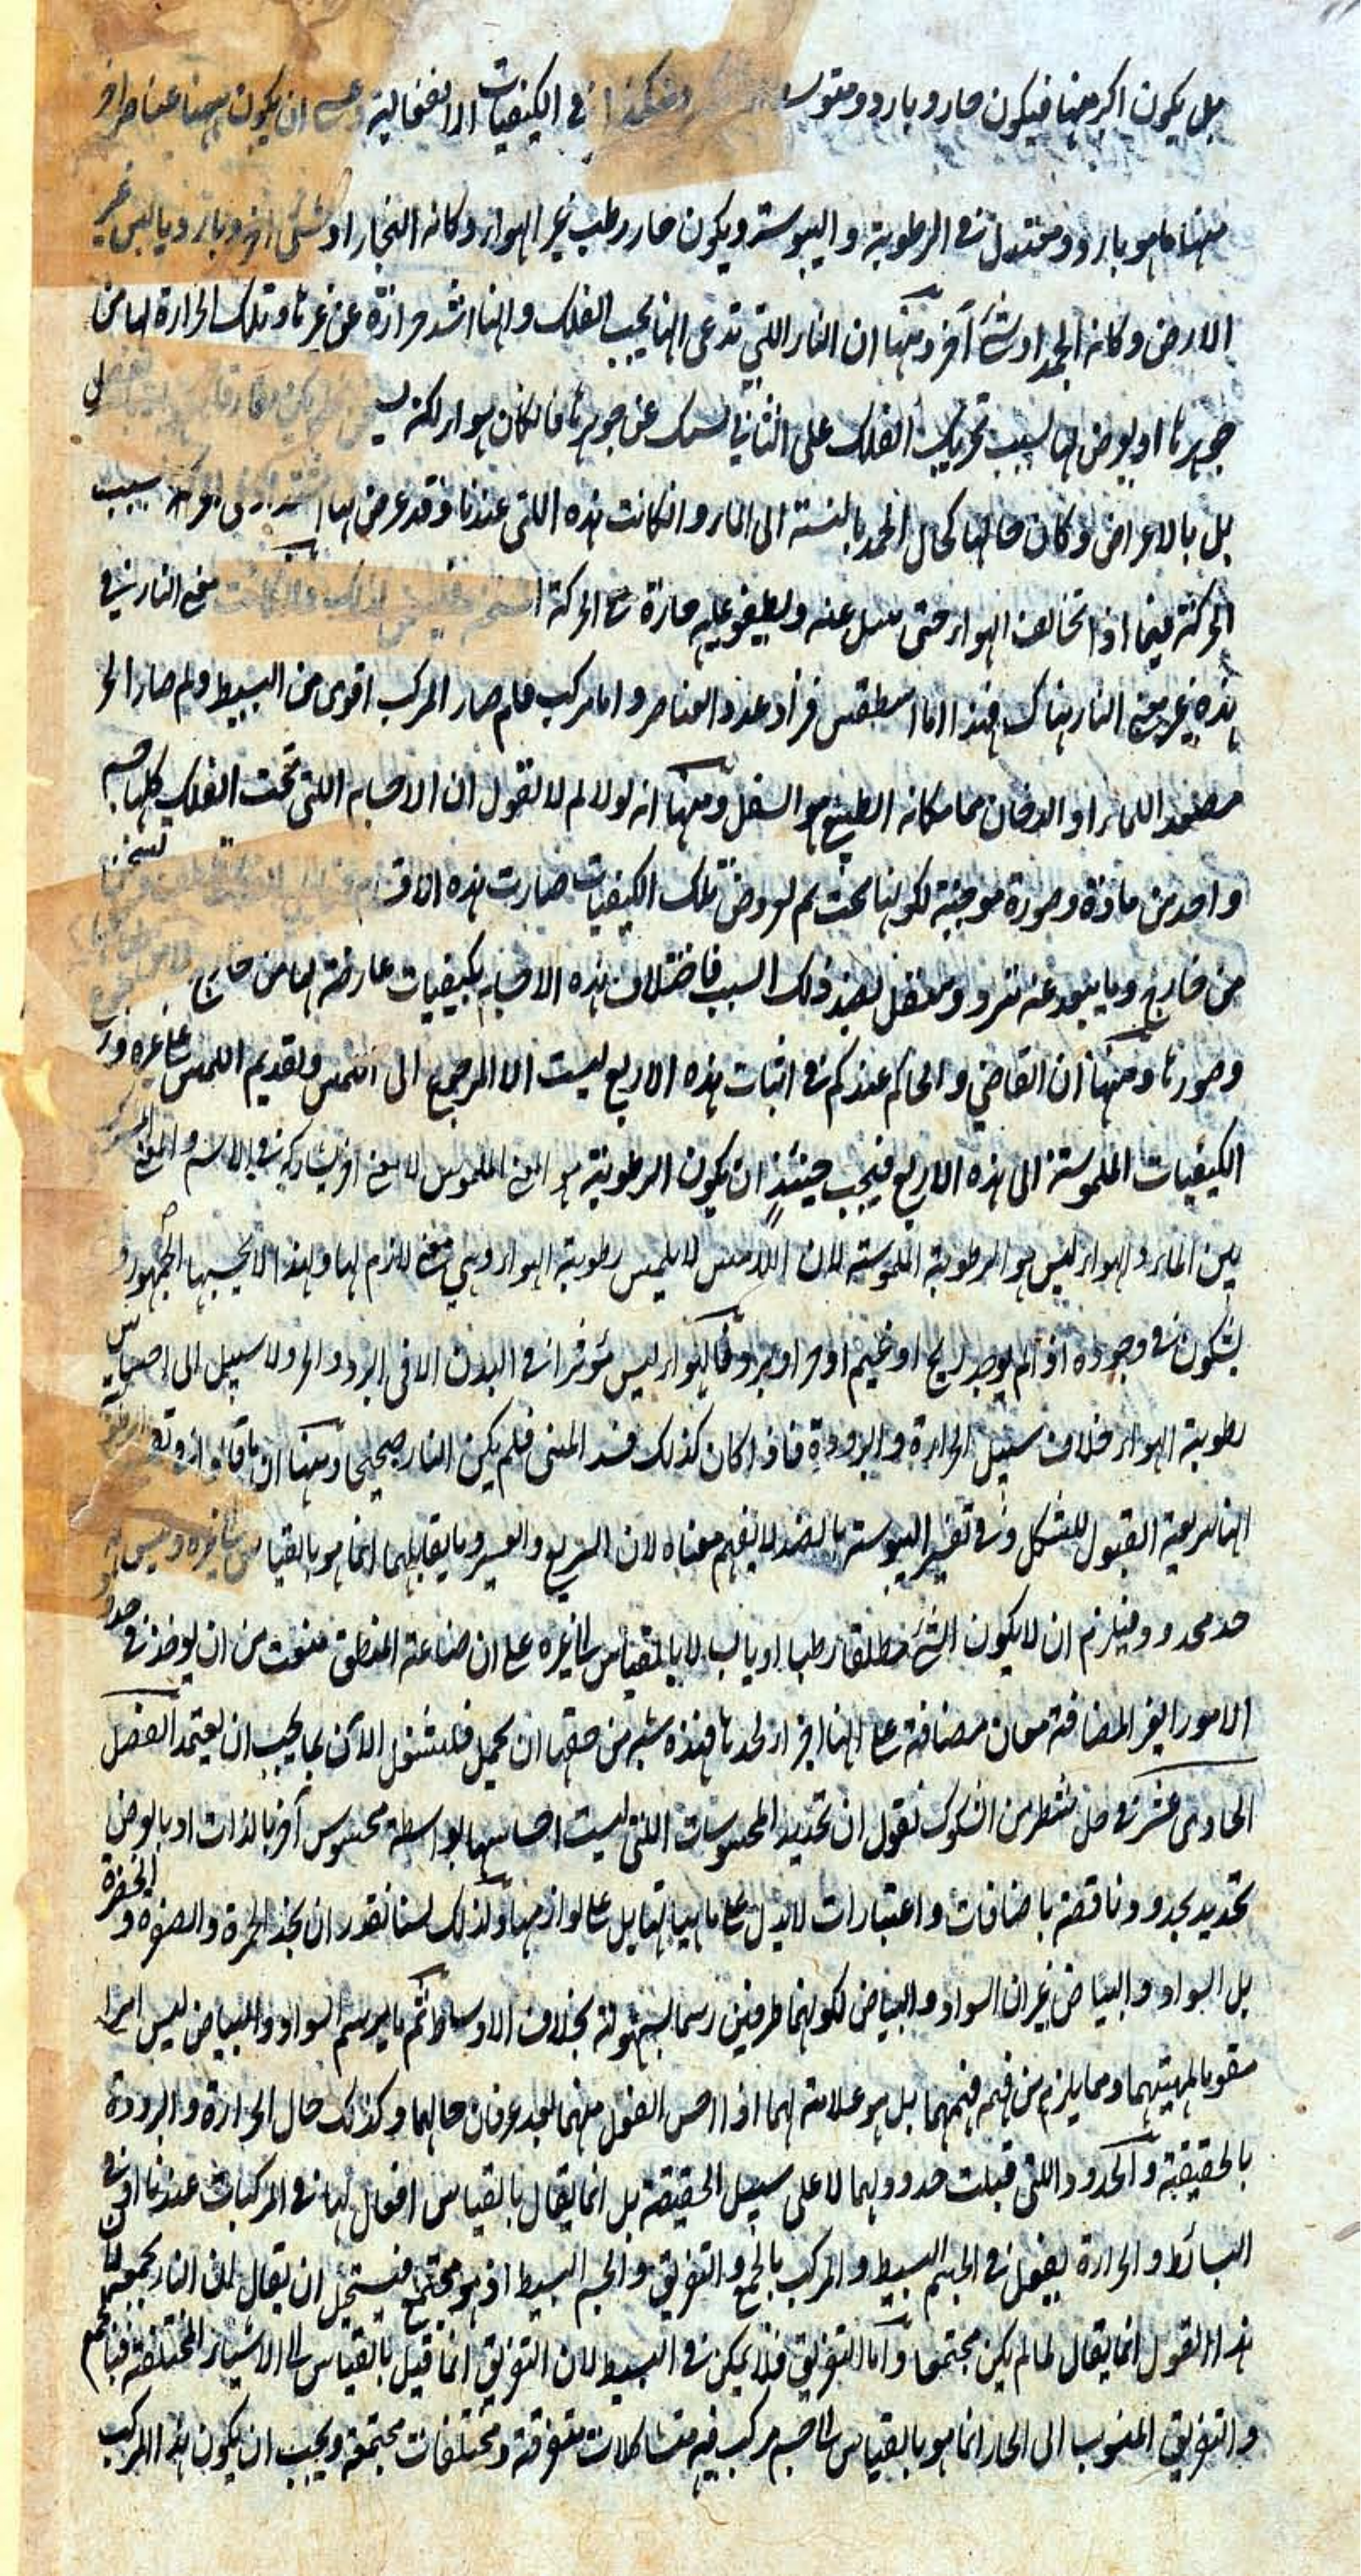 بل يكون اكثر منها فيكون حار وبارد ومتوسط وهكذا في الكيفيات الانفعالية وعسى ان يكون ههنا عناصر اخر
منها ما هو بارد ومعتدل في الرطوبة واليبوسة ويكون حار رطب غير الهواء وكانه البخار او شئ اخر وبارد ويابس غير
الارض وكانه الجمد او شئ آخر ومنها ان النار اللتي تدعى انها بجنب الفلك وانها اشد حرارة عن غيرها وتلك الحرارة لها من
جوهرها او يعرض لها بسبب تحريك الفلك على الثاني عن جوهرها فالكان هواء لكنه
بل بالاعراض وكان حالها كحال الجمد بالنسبة الى الماء وانكانت هذه اللتي عندنا وقد عرض لها بسبب
الحركة فيما اذا تخالف الهواء حتى ميل عنه ويطفو عليه حارة في الحركة معنى النار في
هذه غير معنى النار هناك فهذا اما اسطقس فزاد عدد العناصر واما مركب فلم صار المركب اقوى من البسيط ولم صار الحر
مصعد الماء او الدخان مما مكانه الطبيعي هو السفل ومنها انه لولا لم لا نقول ان الاجسام اللتي تحت الفلك كلها جسم
واحد من مادة وصورة موجبة لكونها تحت ثم لعروض تلك الكيفيات صارت هذه تسخن
من خارج وما يبعد عنه تبرد ومنفعل بضد ذلك السبب فاختلاف هذه الاجسام بكيفيات عارضة لها من خارج
وصورها ومنها ان القاضي والحاكم عندكم في اثبات هذه الاربع ليست الا المرجوع الى اللمس وتقديم اللمس على غيره ورد
الكيفيات الملموسة الى هذه الاربع فيجب حينئذ ان يكون الرطوبة هو المعنى الملموس لا معنى اخر يشاركه في الاسم والمعنى
بين الماء والهواء ليس هو الرطوبة الملموسة لان اللامس لا يلمس رطوبة الهواء وهي معنى لازم لها ولهذا لا يحسها الجمهور و
يشكون في وجوده اذا لم يوجد ريح او غيم او حر او برد فالهواء ليس مؤثرا في البدن الا في البرد والحر ولا سبيل الى احساس
رطوبة الهواء خلاف سبيل الحرارة والبرودة فاذا كان كذلك فسد المبنى فلم يكن النار صحيحا ومنها ان ما قالوا
انها سريعة القبول للشكل وفي تفسير اليبوسة بالضد لا يفهم معناه لان السريع والعسير وما يقابلهما انما هو بالقياس الى غيره وليس له
حد محدود فيلزم ان لا يكون الشئ مطلقا رطبا او يابسا لا بالقياس الى غيره على ان صناعة المنطق منعت من ان يوخذ في حدود
الامور الغير المضافة معان مضافة على انها اجزاء لحدها فهذه شبه من حقها ان تحل فلنشتغل الآن بما يجب ان يعتمد الفصل
الحادى عشر في حل شطر من الشكوك نقول ان تحديد المحسوسات اللتي ليست احساسها بواسطة محسوس آخر بالذات او بالعرض
تحديد بحدود ناقصة باضافات واعتبارات لا تدل على ماهياتها بل على لوازمها ولذلك لسنا نقدر ان نحد الحمرة والصفرة والخضرة
بل السواد والبياض غير ان السواد والبياض لكونهما طرفين رسما بسهولة بخلاف الاوساط ثم ما يرسم السواد والبياض ليس امرا
مقوما لمهيتهما ومما يلزم من فهمه فهمهما بل هو علامة لهما اذا احس الفعل منهما بعد عرفان حالهما وكذلك حال الحرارة والبرودة
بالحقيقة والحدود اللتي قبلت حدود لهما لا على سبيل الحقيقة بل انما يقال بالقياس افعال لها في المركبات عندنا او في
البسائط والحرارة يفعل في الجسم البسيط والمركب بالجمع والتفريق والجسم البسيط اذ هو مجتمع فيستحيل ان يقال ان النار يجمعه لان
هذا القول انما يقال لما لم يكن مجتمعا واما التفريق فلا يمكن في البسيط لان التفريق انما قيل بالقياس الى الاشياء المختلفة فبالجمع
والتفريق المنسوب الى الحار انما هو بالقياس الى جسم مركب فيه متشاكلات متفرقة ومختلفات مجتمعة ويجب ان يكون هذا المركب